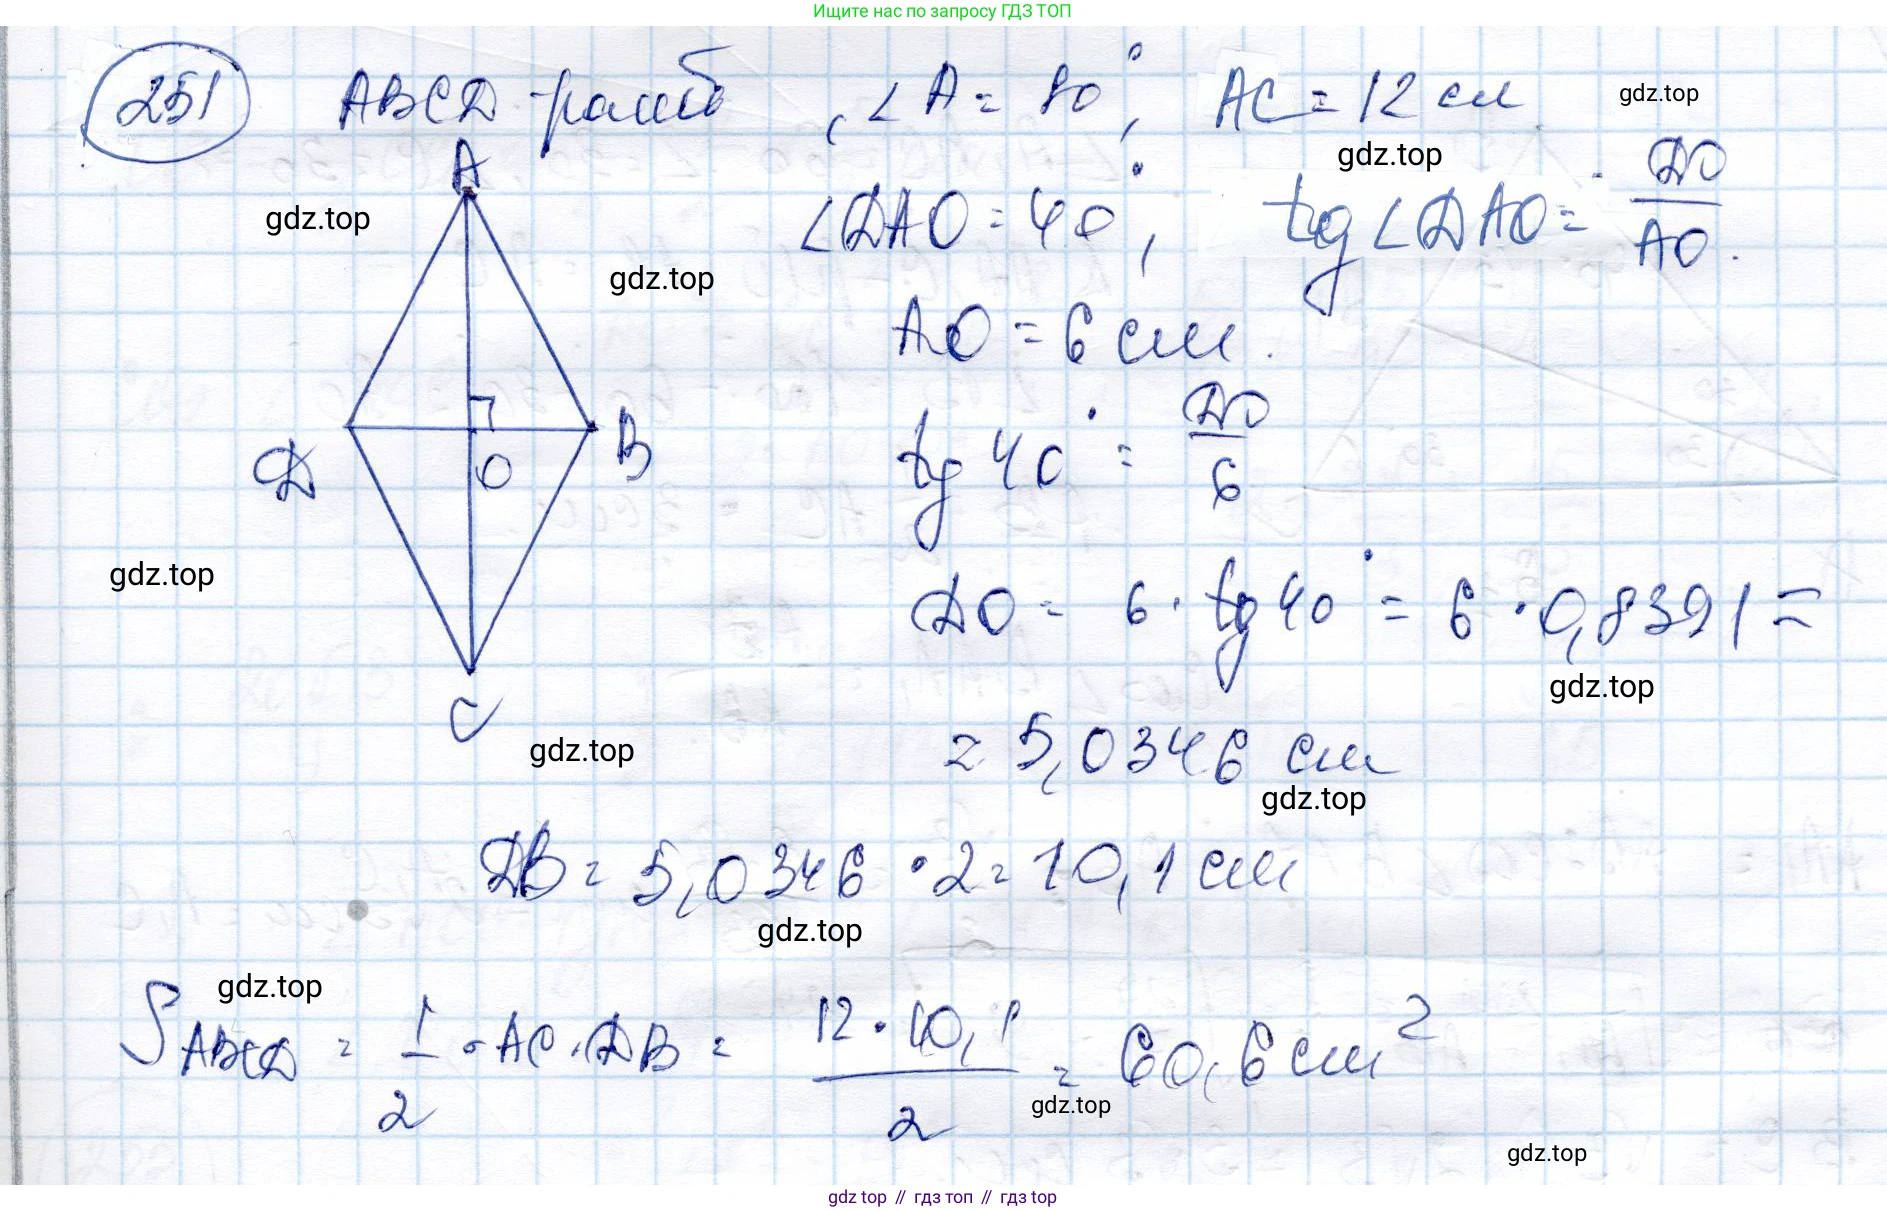 Ищите нас по запросу ГДЗ ТОП
251 ABCD - ромб, ∠A = 80°, AC = 12 см
gdz.top
gdz.top
A
∠DAO = 40°, tg∠DAO = DO/AO.
gdz.top
gdz.top
AO = 6 см.
tg 40° = DO/6
D O B
gdz.top
DO = 6 · tg 40° = 6 · 0,8391 =
gdz.top
C
gdz.top
= 5,0346 см
gdz.top
DB = 5,0346 · 2 = 10,1 см
gdz.top
gdz.top
S ABCD = 1/2 · AC · DB = 12 · 10,1/2 = 60,6 см²
gdz.top
gdz.top
gdz top // гдз топ // гдз top